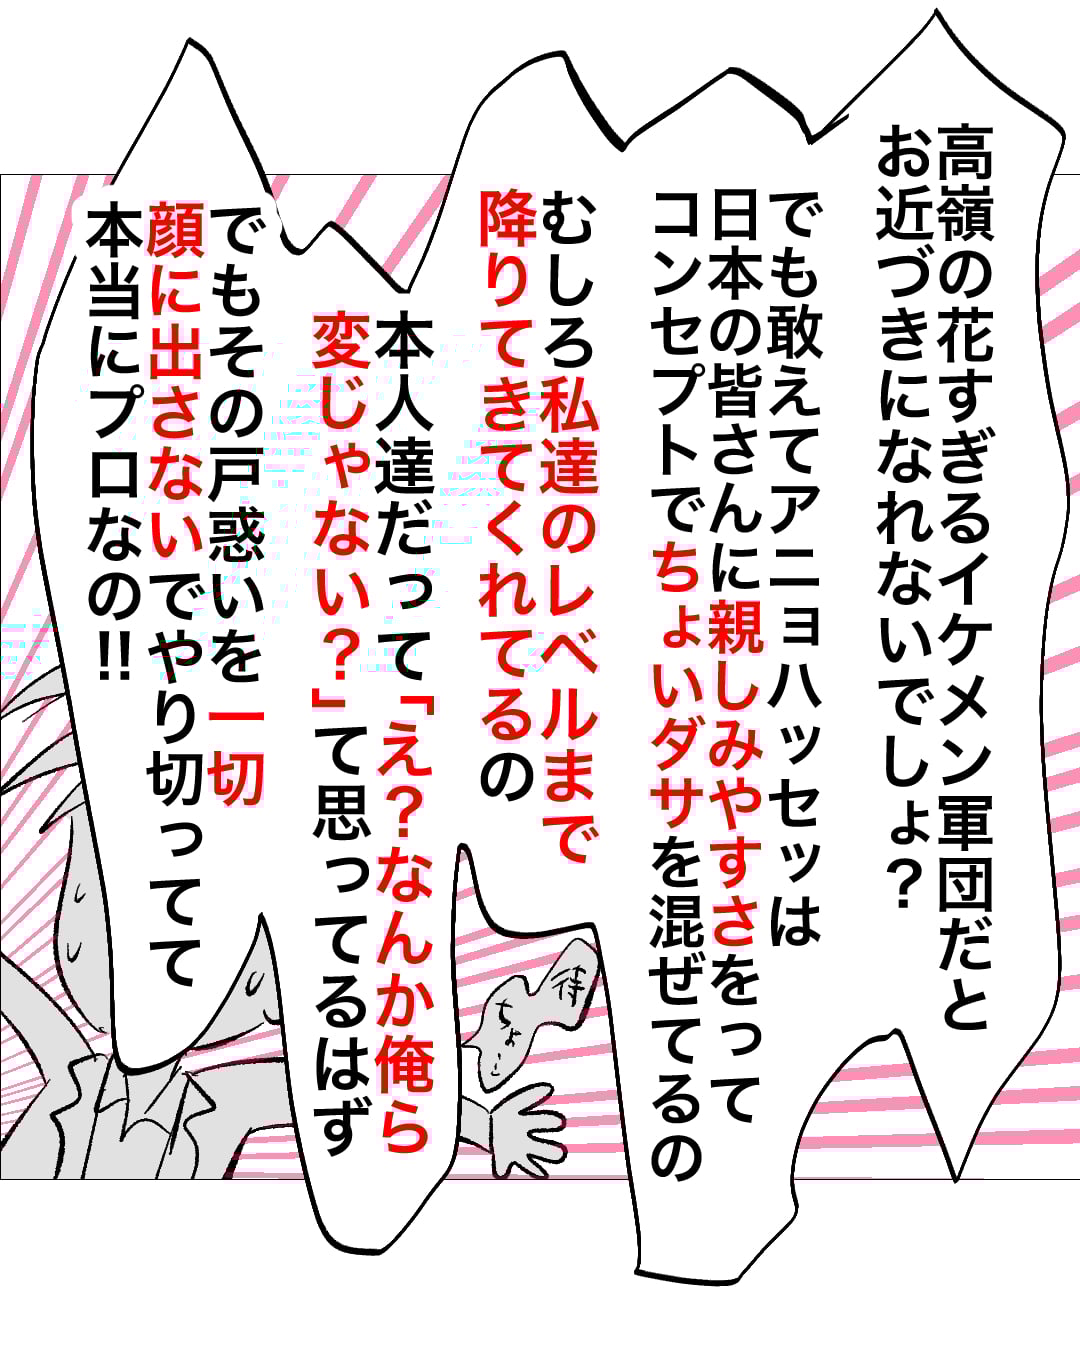 高嶺の花すぎるイケメン軍団だと
お近づきになれないでしょ?
でも敢えてアニョハッセッは
日本の皆さんに親しみやすさをって
コンセプトでちょいダサを混ぜてるの
むしろ私達のレベルまで
降りてきてくれてるの
本人達だって「え?なんか俺ら
変じゃない?」て思ってるはず
でもその戸惑いを一切
顔に出さないでやり切ってて
本当にプロなの!!
待
ちょ…